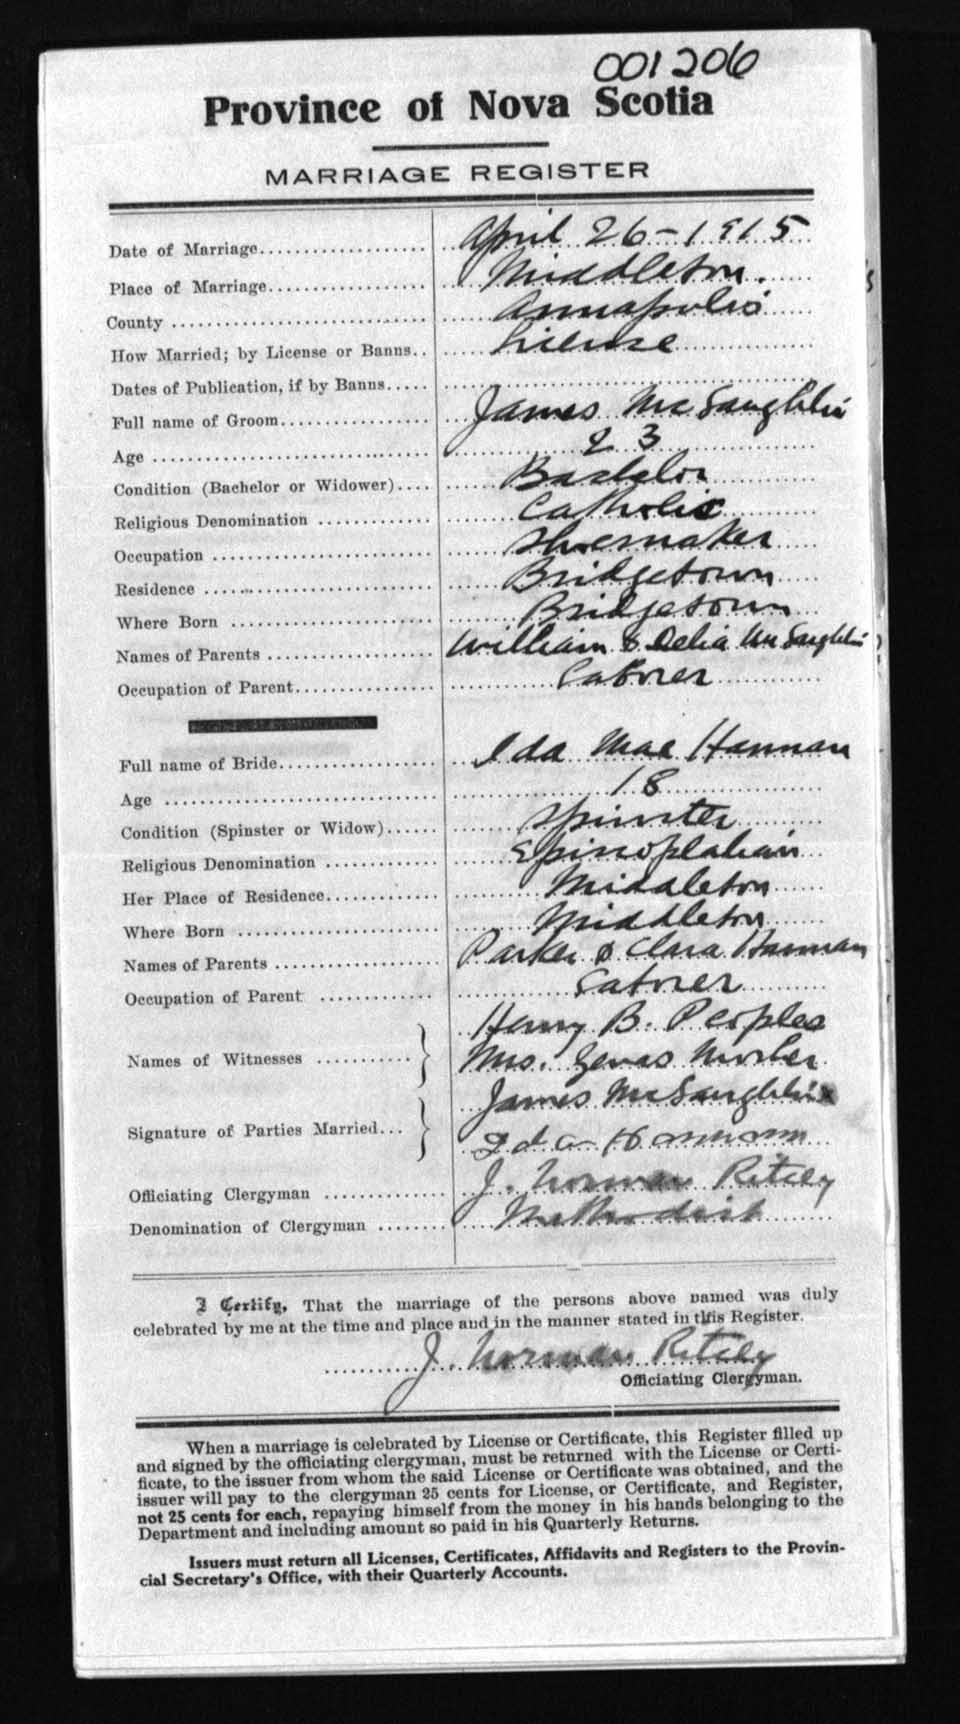 001206
Province of Nova Scotia
MARRIAGE REGISTER
Date of Marriage April 26-1915
Place of Marriage Middleton.
County Annapolis
How Married; by License or Banns License
Dates of Publication, if by Banns
Full name of Groom James McLaughlin
Age 23
Condition (Bachelor or Widower) Bachelor
Religious Denomination Catholic
Occupation Shoemaker
Residence Bridgetown
Where Born Bridgetown
Names of Parents William & Delia McLaughlin
Occupation of Parent Laborer
Full name of Bride Ida Mae Hannan
Age 18
Condition (Spinster or Widow) Spinster
Religious Denomination Episcoplalian
Her Place of Residence Middleton
Where Born Middleton
Names of Parents Parker & Clara Hannan
Occupation of Parent Laborer
Names of Witnesses Henry B. Peoples
Mrs.
Signature of Parties Married James McLaughlin
Ida Hannam
Officiating Clergyman J. Norman Ritcey
Denomination of Clergyman Methodist
I Certify, That the marriage of the persons above named was duly
celebrated by me at the time and place and in the manner stated in this Register.
J. Norman Ritcey
Officiating Clergyman.
When a marriage is celebrated by License or Certificate, this Register filled up
and signed by the officiating clergyman, must be returned with the License or Certi-
ficate, to the issuer from whom the said License or Certificate was obtained, and the
issuer will pay to the clergyman 25 cents for License, or Certificate, and Register,
not 25 cents for each, repaying himself from the money in his hands belonging to the
Department and including amount so paid in his Quarterly Returns.
Issuers must return all Licenses, Certificates, Affidavits and Registers to the Provin-
cial Secretary's Office, with their Quarterly Accounts.